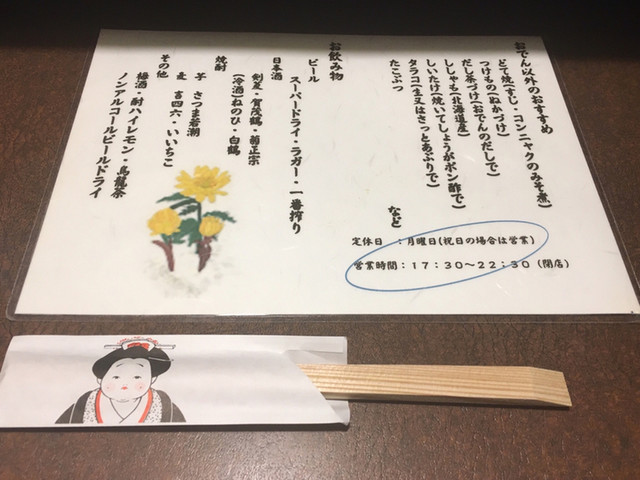 おでん以外のおすすめ
どて焼(すじ・コンニャクのみそ煮)
つけもの(ぬかづけ)
だし茶づけ(おでんのだしで)
ししゃも(北海道産)
しいたけ(焼いてしょうがポン酢で)
タラコ(生又はさっとあぶりで)
たこぶつ
など
定休日 :月曜日(祝日の場合は営業)
営業時間:17:30~22:30(閉店)
お飲み物
ビール
スーパードライ・ラガー・一番搾り
日本酒
剣菱・賀茂鶴・菊正宗
(冷酒)ねのひ・白鶴
焼酎
芋 さつま若潮
麦 吉四六・いいちこ
その他
梅酒・酎ハイレモン・烏龍茶
ノンアルコールビールドライ